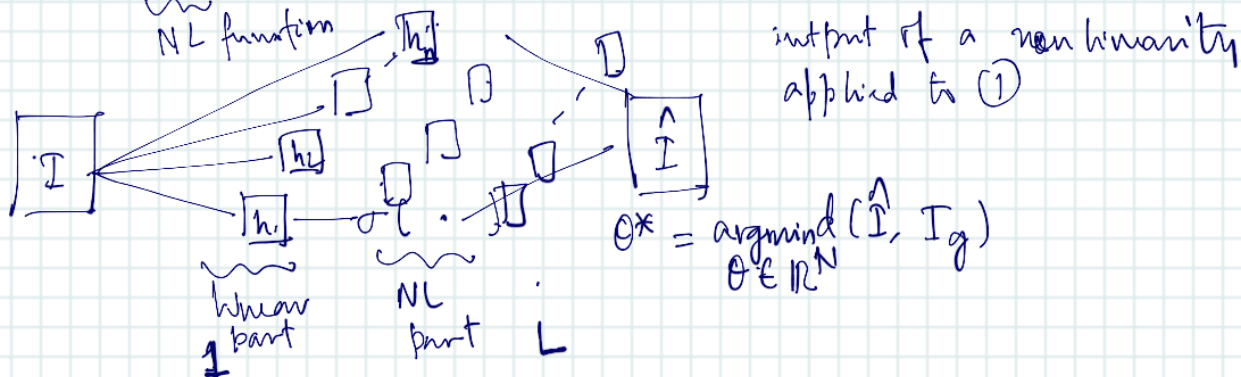 NL function
intput of a non linearity
applied to ①
I
h₁
h₂
hₙ
σ( · )
Î
θ* = argmin d (Î, I_g)
θ ∈ ℝᴺ
Linear
part
NL
part
1
L